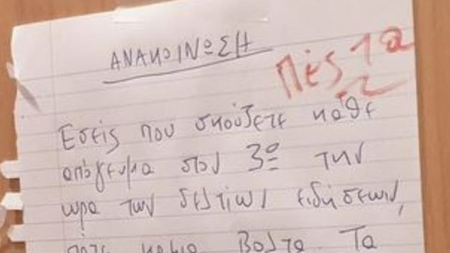 ΑΝΑΚΟΙΝΩΣΗ
Πές τα
Εσείς που σκούζετε κάθε
απόγευμα στον 3º την
ώρα των δελτίων ειδήσεων,
πάτε καμια βόλτα. Τα